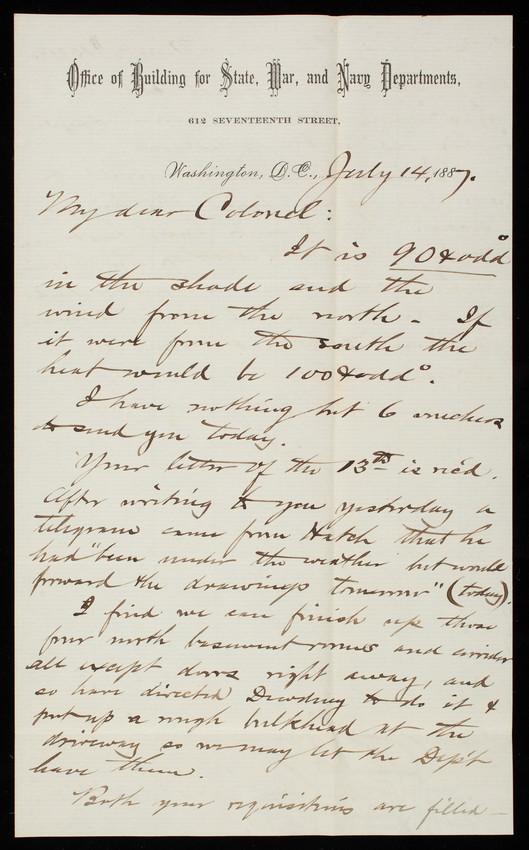 Office of Building for State, War, and Navy Departments,
612 SEVENTEENTH STREET,
Washington, D.C., July 14, 1887.
My dear Colonel:
It is 90 & odd°
in the shade and the
wind from the north - If
it were from the south the
heat would be 100 & odd°.
I have nothing but 6 vouchers
to send you today.
Your letter of the 13th is rec'd.
After writing to you yesterday a
telegram came from Hatch that he
had "been under the weather but would
forward the drawings tomorrow" (today).
I find we can finish up those
four north basement rooms and corridor
all except doors right away, and
so have directed Dewdney to do it &
put up a rough bulkhead at the
driveway so we may let the Dep't
have them.
Both your requisitions are filled -